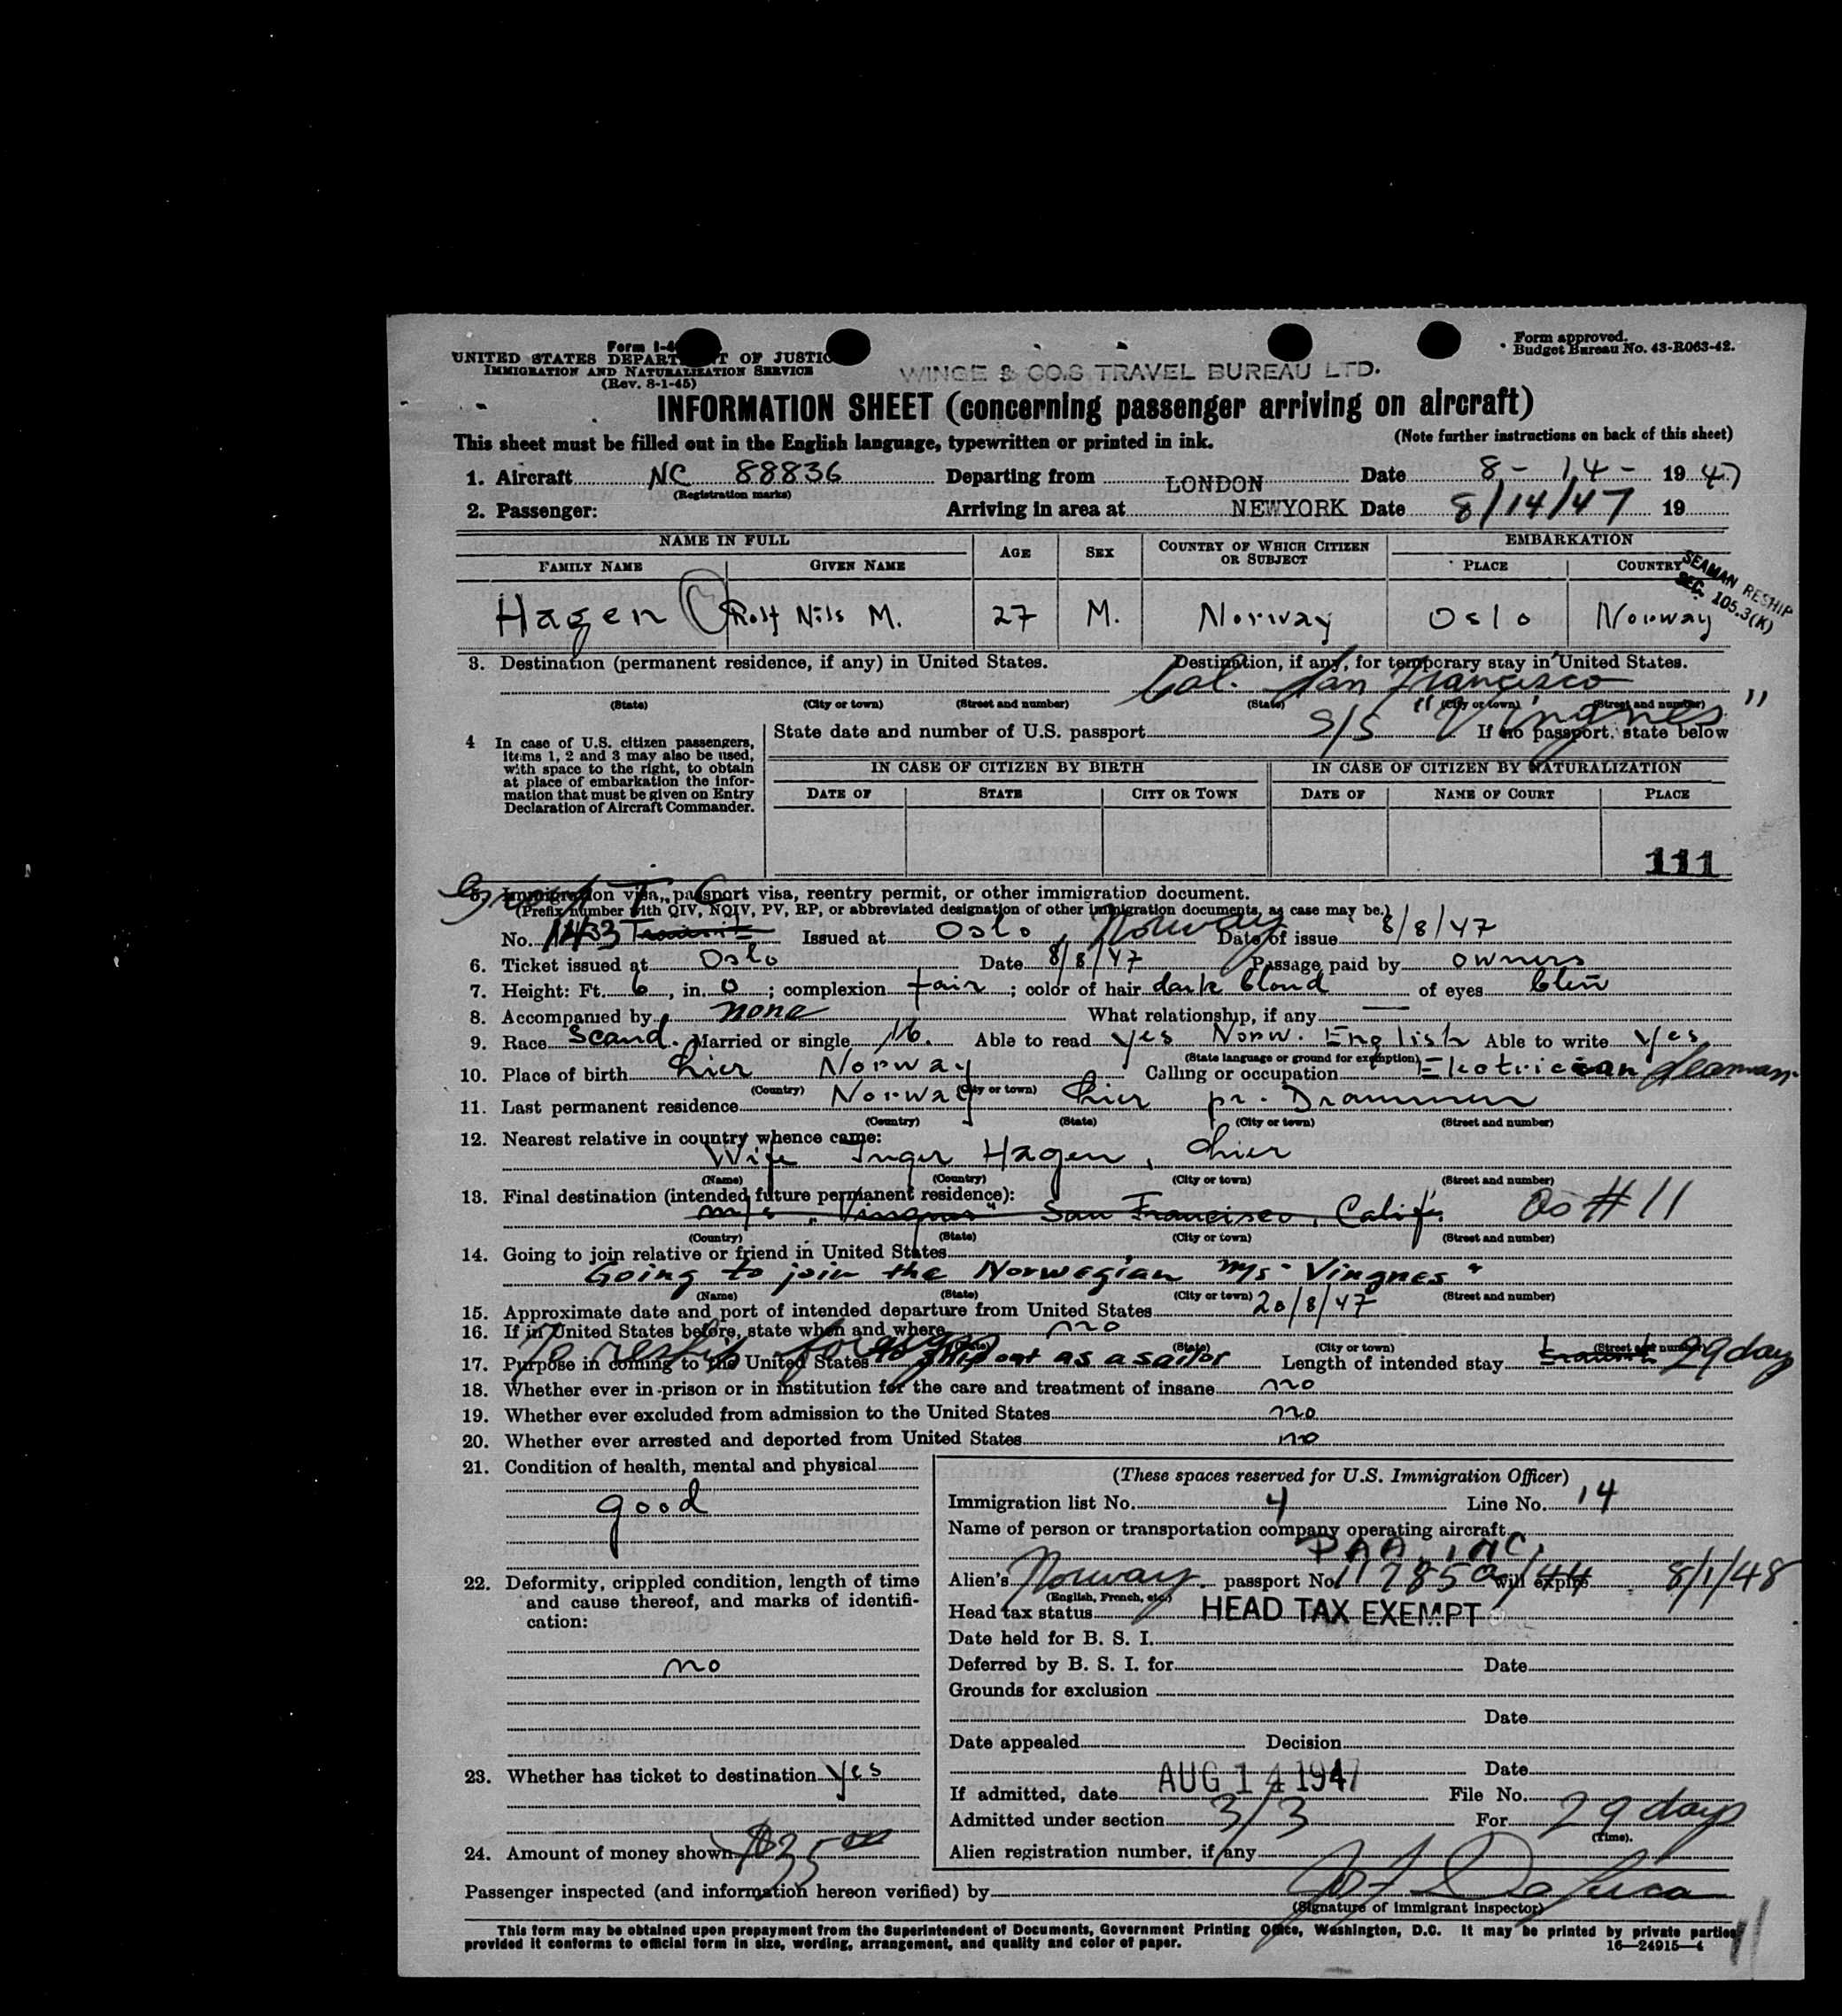 Form I-4
UNITED STATES DEPART T OF JUSTIC
IMMIGRATION AND NATURALIZATION SERVICE
(Rev. 8-1-45)
WINGE & CO.S TRAVEL BUREAU LTD.
Form approved.
Budget Bureau No. 43-R063-42.
INFORMATION SHEET (concerning passenger arriving on aircraft)
This sheet must be filled out in the English language, typewritten or printed in ink. (Note further instructions on back of this sheet)
1. Aircraft NC 88836 Departing from LONDON Date 8-14- 1947
(Registration marks)
2. Passenger: Arriving in area at NEWYORK Date 8/14/47 19
NAME IN FULL AGE SEX COUNTRY OF WHICH CITIZEN OR SUBJECT EMBARKATION
FAMILY NAME GIVEN NAME PLACE COUNTRY
SEAMAN RESHIP
SEC. 105.3(K)
Hagen Rolf Nils M. 27 M. Norway Oslo Norway
3. Destination (permanent residence, if any) in United States. Destination, if any, for temporary stay in United States.
Cal. San Francisco
(State) (City or town) (Street and number) (State) (City or town) (Street and number)
S/S "Vingnes"
4 In case of U.S. citizen passengers, items 1, 2 and 3 may also be used, with space to the right, to obtain at place of embarkation the information that must be given on Entry Declaration of Aircraft Commander.
State date and number of U.S. passport If no passport, state below
IN CASE OF CITIZEN BY BIRTH IN CASE OF CITIZEN BY NATURALIZATION
DATE OF STATE CITY OR TOWN DATE OF NAME OF COURT PLACE
111
5. Immigration visa, passport visa, reentry permit, or other immigration document.
(Prefix number with QIV, NQIV, PV, RP, or abbreviated designation of other immigration documents, as case may be.)
No. 1433 Transit Issued at Oslo, Norway Date of issue 8/8/47
6. Ticket issued at Oslo Date 8/8/47 Passage paid by owners
7. Height: Ft. 6, in. 0; complexion fair; color of hair dark blond of eyes
8. Accompanied by none What relationship, if any —
9. Race Scand. Married or single Able to read yes Norw. English Able to write yes
(State language or ground for exemption)
10. Place of birth Lier Norway Calling or occupation Elektrician Seaman
(Country) (City or town)
11. Last permanent residence Norway Lier pr. Drammen
(Country) (State) (City or town) (Street and number)
12. Nearest relative in country whence came:
Wife Inger Hagen, Lier
(Name) (Country) (City or town) (Street and number)
13. Final destination (intended future permanent residence):
m/s "Vingnes" San Francisco, Calif. #11
(Country) (State) (City or town) (Street and number)
14. Going to join relative or friend in United States
Going to join the Norwegian M/s "Vingnes"
(Name) (State) (City or town) (Street and number)
15. Approximate date and port of intended departure from United States 20/8/47
16. If in United States before, state when and where no
(State) (City or town) (Street and number)
To reship foreign
17. Purpose in coming to the United States to ship out as a sailor Length of intended stay transit 29 days
18. Whether ever in prison or in institution for the care and treatment of insane no
19. Whether ever excluded from admission to the United States no
20. Whether ever arrested and deported from United States no
21. Condition of health, mental and physical
good
22. Deformity, crippled condition, length of time and cause thereof, and marks of identification:
no
23. Whether has ticket to destination yes
24. Amount of money shown $35.00
(These spaces reserved for U.S. Immigration Officer)
Immigration list No. 4 Line No. 14
Name of person or transportation company operating aircraft
PAA, INC.
Alien's Norway passport No. will expire 8/1/48
(English, French, etc.)
Head tax status HEAD TAX EXEMPT
Date held for B. S. I.
Deferred by B. S. I. for Date
Grounds for exclusion
Date
Date appealed Decision
Date
If admitted, date AUG 14 1947 File No.
Admitted under section 3/3 For 29 days
(Time).
Alien registration number, if any
Passenger inspected (and information hereon verified) by
(Signature of immigrant inspector)
This form may be obtained upon prepayment from the Superintendent of Documents, Government Printing Office, Washington, D.C. It may be printed by private parties
provided it conforms to official form in size, wording, arrangement, and quality and color of paper.
16—24915-4
11